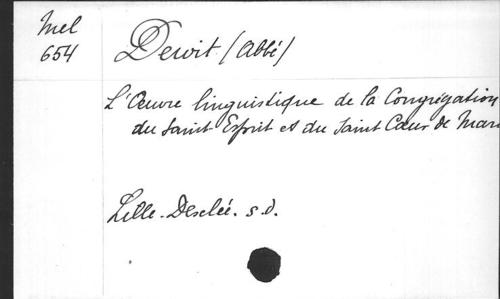 Mel
654
Dewit (Abbé)
L'Œuvre linguistique de la Congrégation
du Saint Esprit et du Saint Cœur de Mari
Lille - Desclée. s.d.